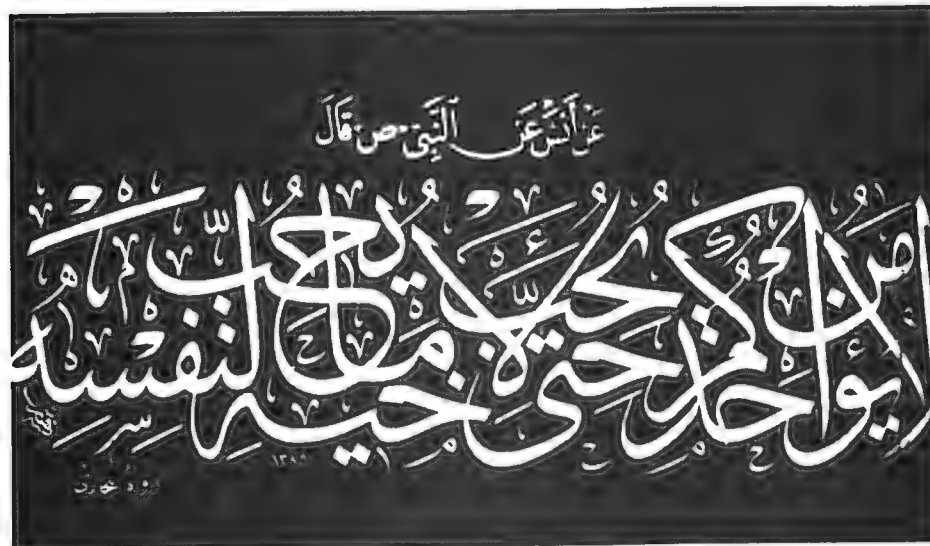 عَنْ أَنَسْ عَنِ النَّبِيِّ ص قَالَ
لا يؤمن احدكم حتى يحب لاخيه ما يحب لنفسه
١٣٩٩
رواه بخاري